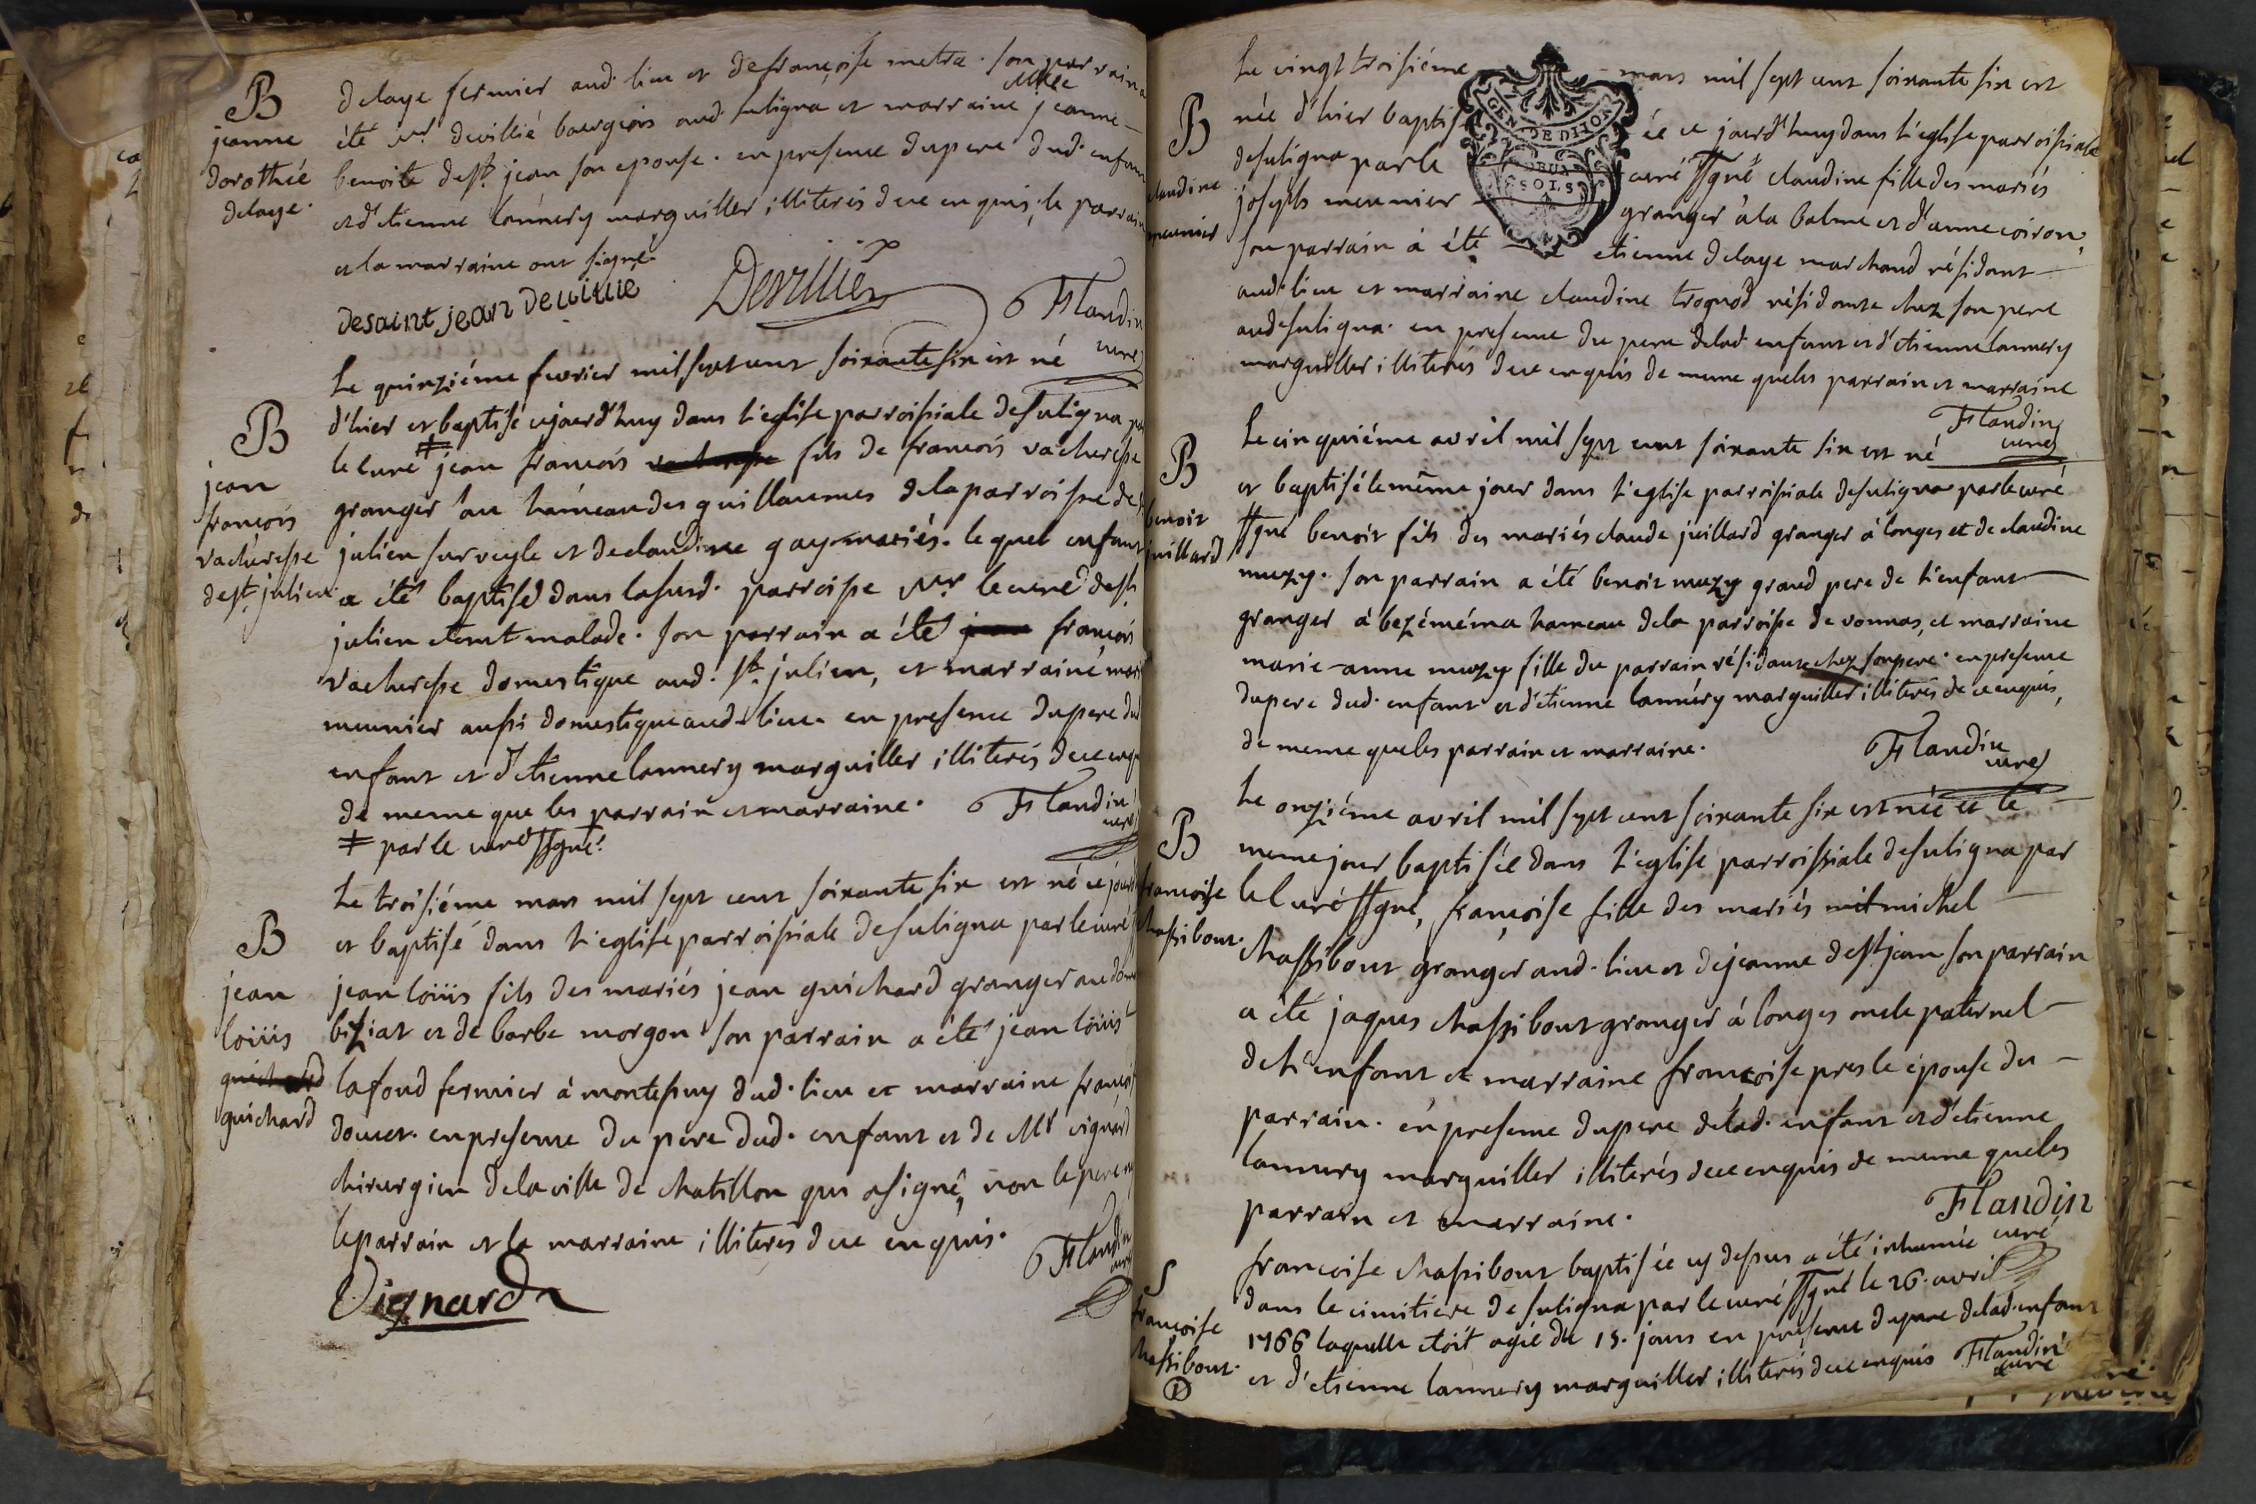 B
jeanne
dorothée
delaye.
delaye fermier aud. lieu et de françoise metra. son parrain a
été mr. devillié bourgeois aud. suligna et marraine Mlle jeanne
benoite de st. jean son epouse. en presence du pere dud. enfant
et d'etienne lannery marguiller illiterés de ce enquis, le parrain
et la marraine ont signé.
desaint jean Devillié
Devillié
Flandin
curé
B
jean
françois
vacheresse
de st. julien
Le quinziéme fevrier mil sept cent soixante six est né
d'hier et baptisé cejourd'huy dans l'eglise parroissiale de suligna par
le curé ‡ jean françois fils de françois vacheresse
granger au hameau des guillaumes de la parroisse de st.
julien sur veyle et de claudine gay mariés. le quel enfant
a été baptisé dans lasusd. parroisse Mr. le curé de st.
julien etant malade. son parrain a été françois
vacheresse domestique aud. st. julien, et marraine, marie
meunier aussi domestique aud. lieu. en presence du pere dud.
enfant et d'etienne lannery marguiller illiterés de ce enquis
de meme que les parrain et marraine. Flandin
curé
‡ par le curé ssgné.
B
jean
loüis
guichard
guichard
Le troisiéme mars mil sept cent soixante six est né ce jour
et baptisé dans l'eglise parroissiale de suligna par le curé
jean loüis fils des mariés jean guichard granger au
biziat et de barbe morgon. son parrain a été jean loüis
lafond fermier à montessuy dud. lieu et marraine françoise
doucet. en presence du pere dud. enfant et de Mr vignard
chirurgien de la ville de chatillon qui a signé, non le pere ny
le parrain et la marraine illiterés de ce enquis.
Flandin
curé
Vignard
B
claudine
meunier
Le vingt troisiéme mars mil sept cent soixante six est
GEN. DE DIJON
DEUX
SOLS
née d'hier baptisée ce jourd'huy dans l'eglise parroissiale
de suligna par le curé ssgné claudine fille des mariés
joseph meunier granger à la balme et d'anne coiron.
son parrain à été etienne delaye marchand résidant
aud. lieu et marraine claudine trognod résidante chez son pere
aud. suligna. en presence du pere de lad. enfant et d'etienne lannery
marguiller illiterés de ce enquis de meme que les parrain et marraine
Flandin
curé
B
benoit
juillard
Le cinquiéme avril mil sept cent soixante six est né
et baptisé le même jour dans l'eglise parroissiale de suligna par le curé
ssgné benoit fils des mariés claude juillard granger à longes et de claudine
muzy. son parrain a été benoit muzy grand pere de l'enfant
granger à bezéména hameau de la parroisse de vonnas, et marraine
marie-anne muzy fille du parrain résidante chez son pere. en presence
du pere dud. enfant et d'etienne lannéry marguiller illiterés de ce enquis,
de meme que les parrain et marraine. Flandin
curé
B
françoise
chassibout.
Le onziéme avril mil sept cent soixante six est née et le
meme jour baptisée dans l'eglise parroissiale de suligna par
le curé ssgné, françoise fille des mariés mit michel
chassibout granger aud. lieu et de jeanne de st jean son parrain
a été jaques chassibout granger à longes oncle paternel
de l'enfant et marraine françoise presle épouse du
parrain. en presence du pere de lad. enfant et d'etienne
lannery marguiller illiterés de ce enquis de meme que les
parrain et marraine.
Flandin
curé
S
françoise
chassibout.
françoise chassibout baptisée cy dessus a été inhumée
dans le cimitiére de suligna par le curé ssgné le 26. avril
1766 laquelle étoit agée de 15. jours en presence du pere de lad. enfant
et d'etienne lannery marguiller illiterés de ce enquis Flandin
curé